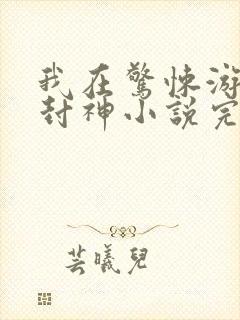 我在驚悚游
封神小說完
芸曦兒